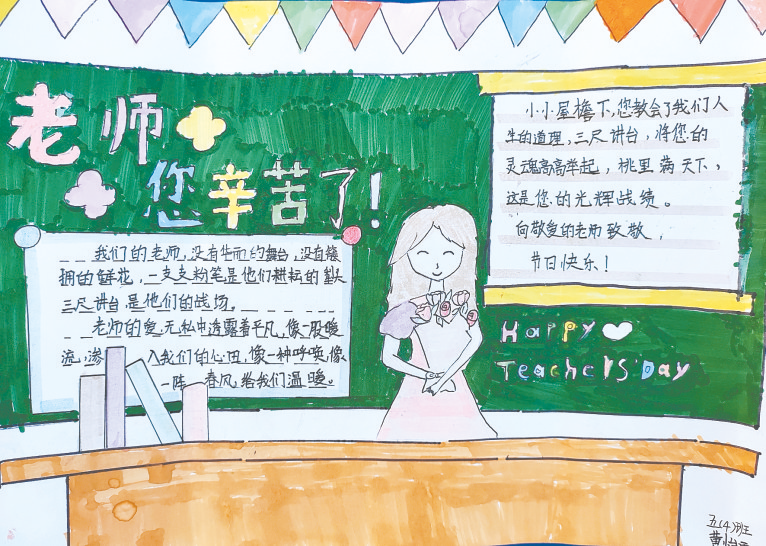 老师
您辛苦了!
小小屋檐下,您教会了我们人
生的道理,三尺讲台,将您的
灵魂高高举起,桃里满天下,
这是您的光辉战绩。
向敬爱的老师致敬,
节日快乐!
我们的老师,没有华丽的舞台,没有簇
拥的鲜花,一支支粉笔是他们耕耘的犁头
三尺讲台,是他们的战场。
老师的爱,无私中透露着平凡,像一股暖
流,渗入我们的心田,像一种呼唤,像
一阵春风,给我们温暖。
Happy
Teachers'Day
五(4)班
黄怡